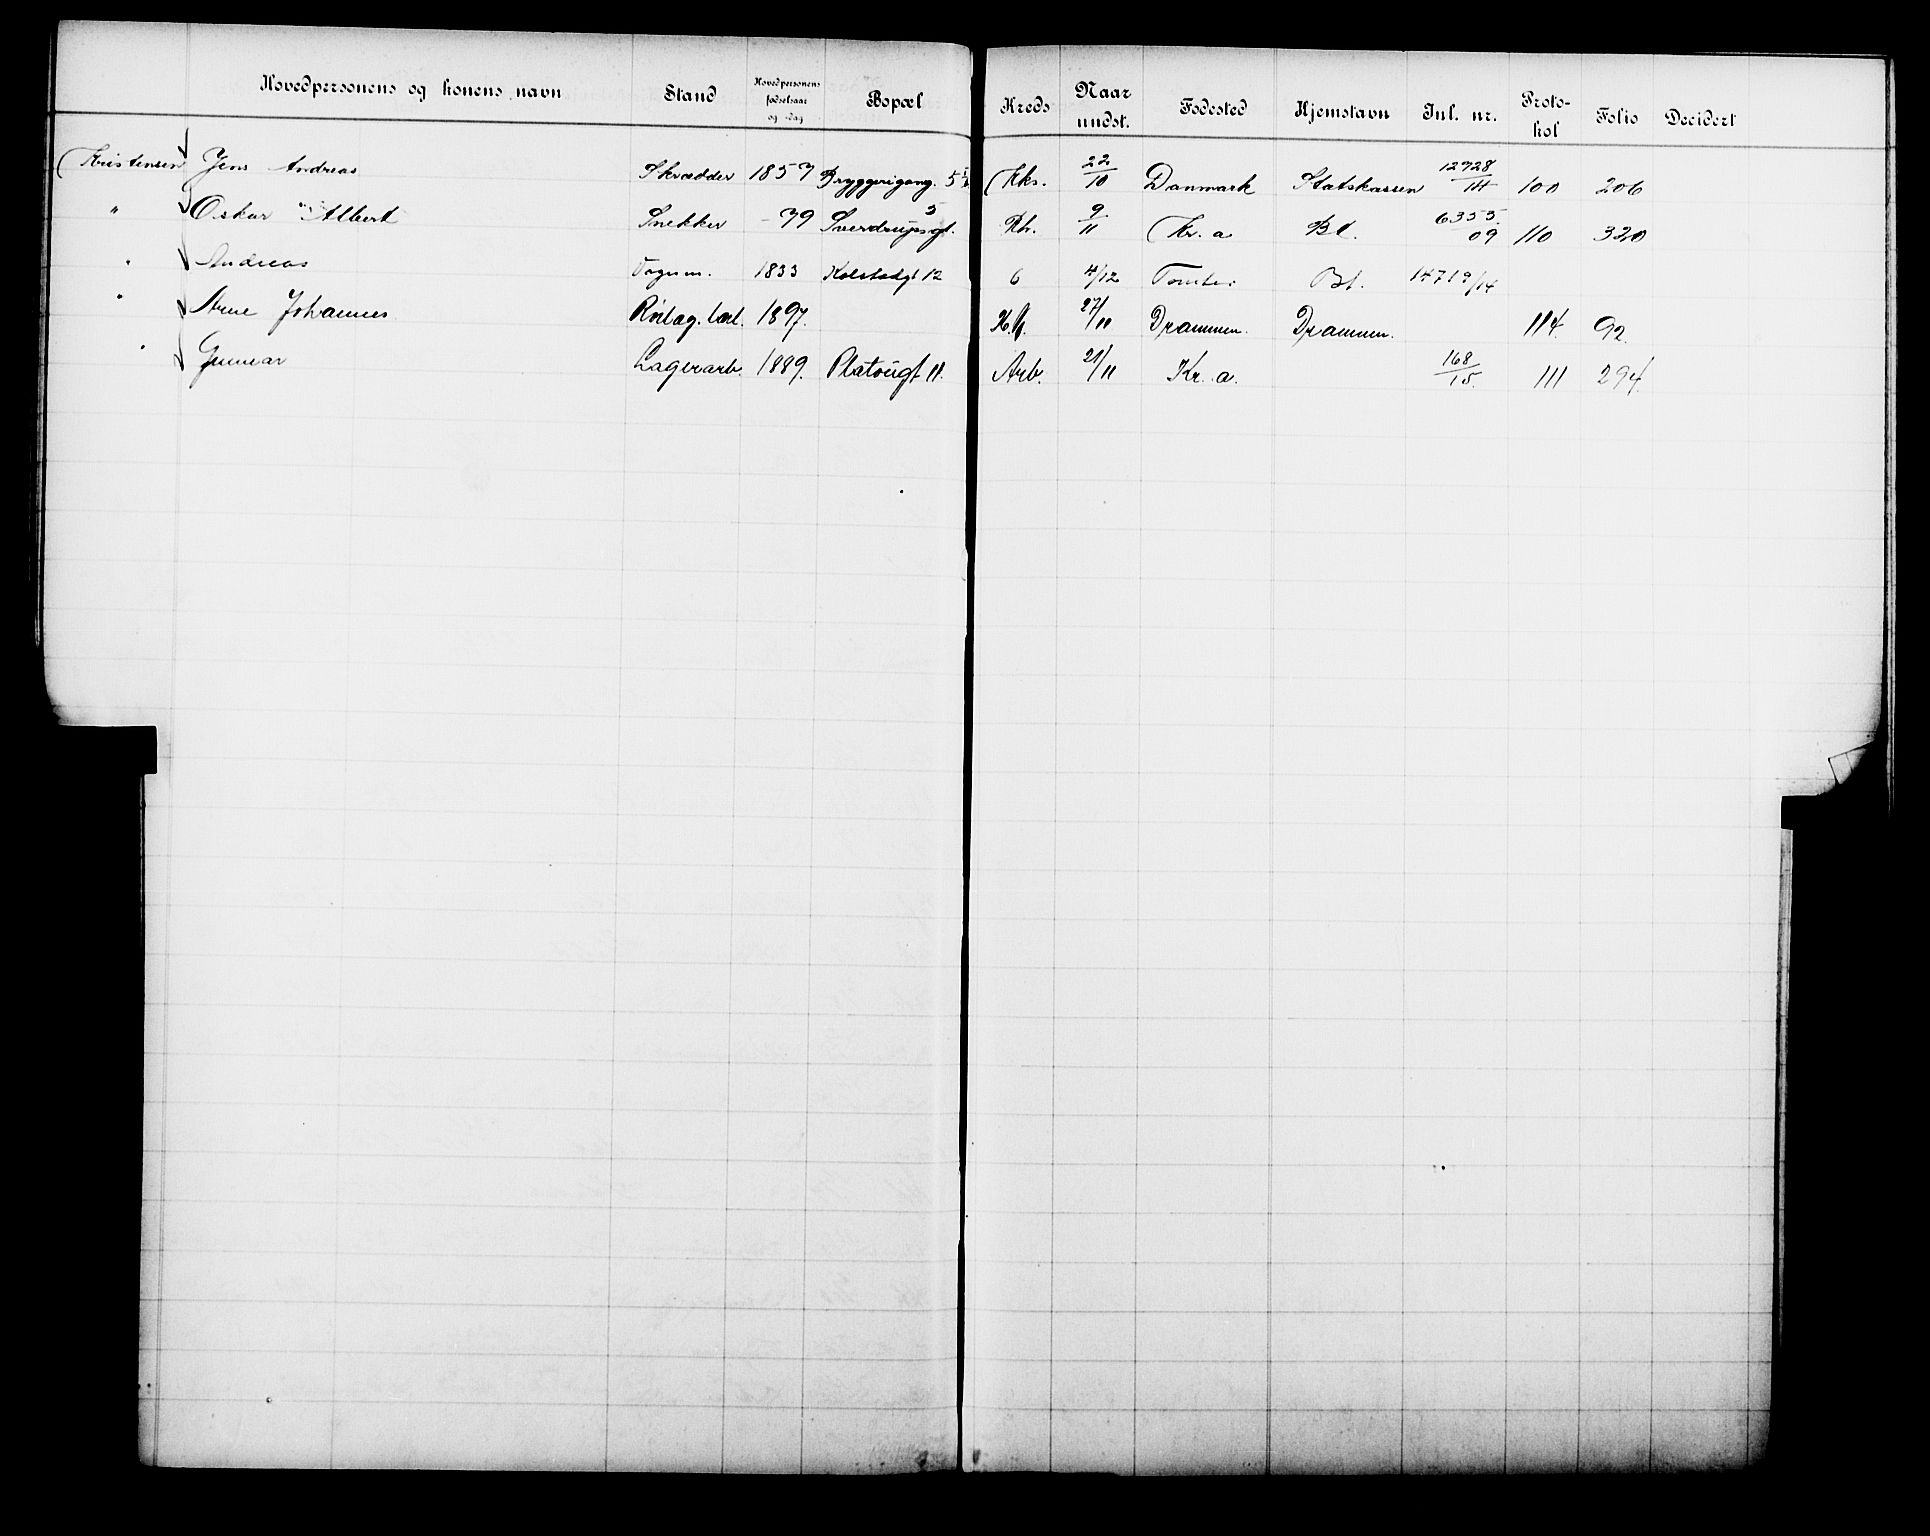 Hovedpersonens og konens navn Stand Hovedpersonens fødselsaar og -dag Bopæl Kreds Naar undst. Fødested Hjemstavn Inl. nr. Proto-kol Folio Decidert
Kristensen Jens Andreas Skrædder 1857 Bryggerigang. 5 Kks. 22/10 Danmark Statskassen 12728/14 100 206
" Oskar Albert Snekker - 79 Sverdrupsgt. 5 Rh. 9/11 Kr. a Bl. 6355/09 110 320
" Andreas Vognm. 1833 Kolstadgt 12 6 4/12 Tomter Bl. 14719/14
" Arne Johannes Rørlæg. lærl. 1897. 27/11 Drammen. Drammen. 114. 92.
" Gunnar Lagerarb. 1889. Platougt 11. Arb. 21/11 Kr. a. 168/15. 111 294.